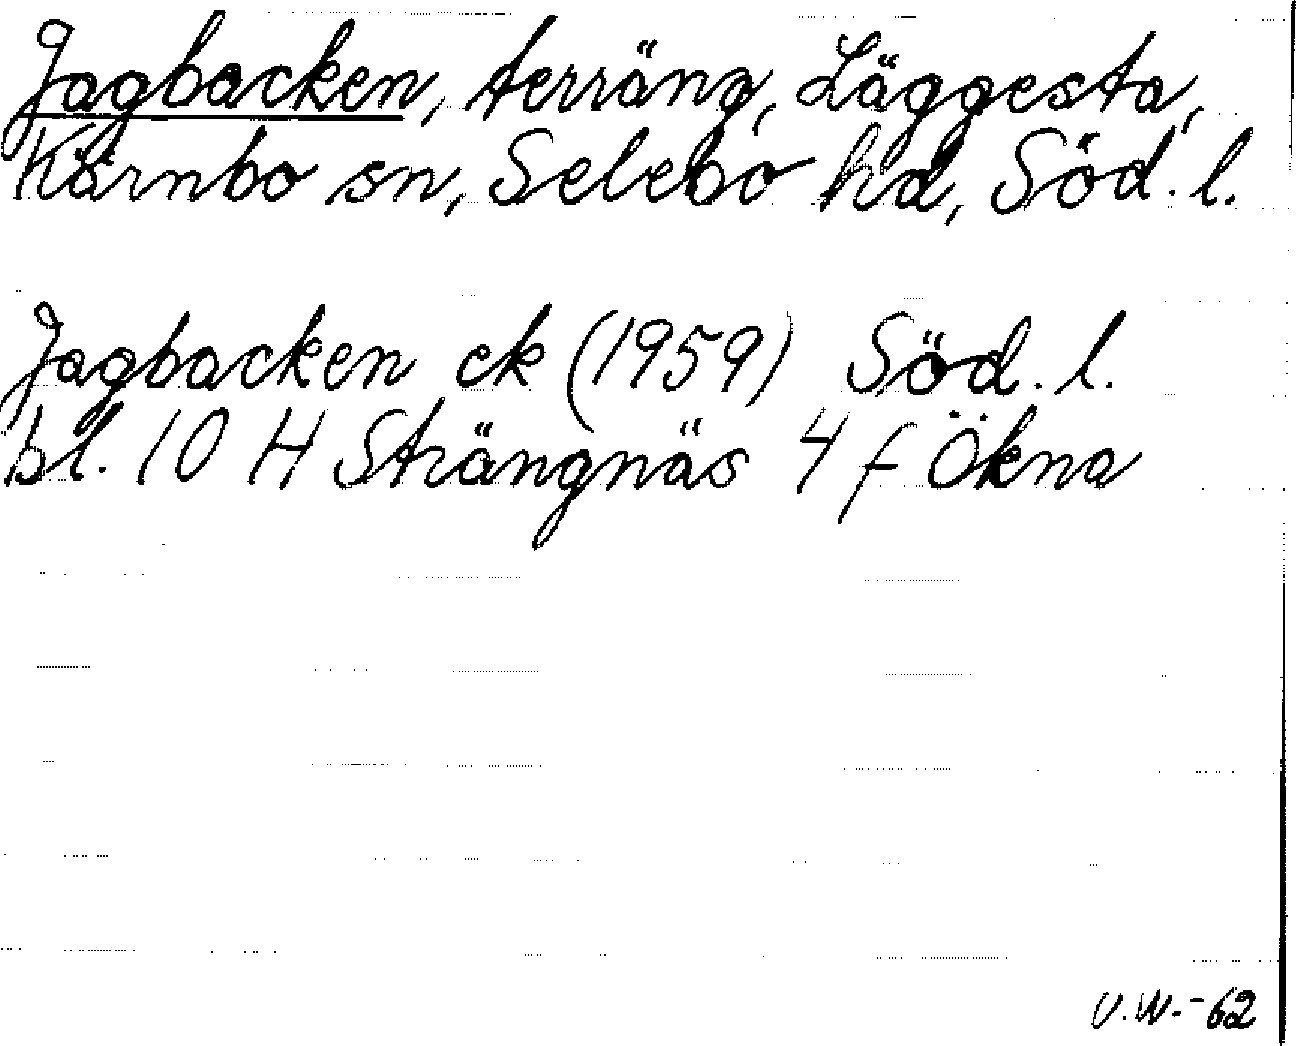 Jagbacken, terräng, Läggesta,
Kärnbo sn, Selebo hd, Söd. l.
Jagbacken ek (1959) Söd. l.
bl. 10 H Strängnäs 4 f Ökna
V.W.-62